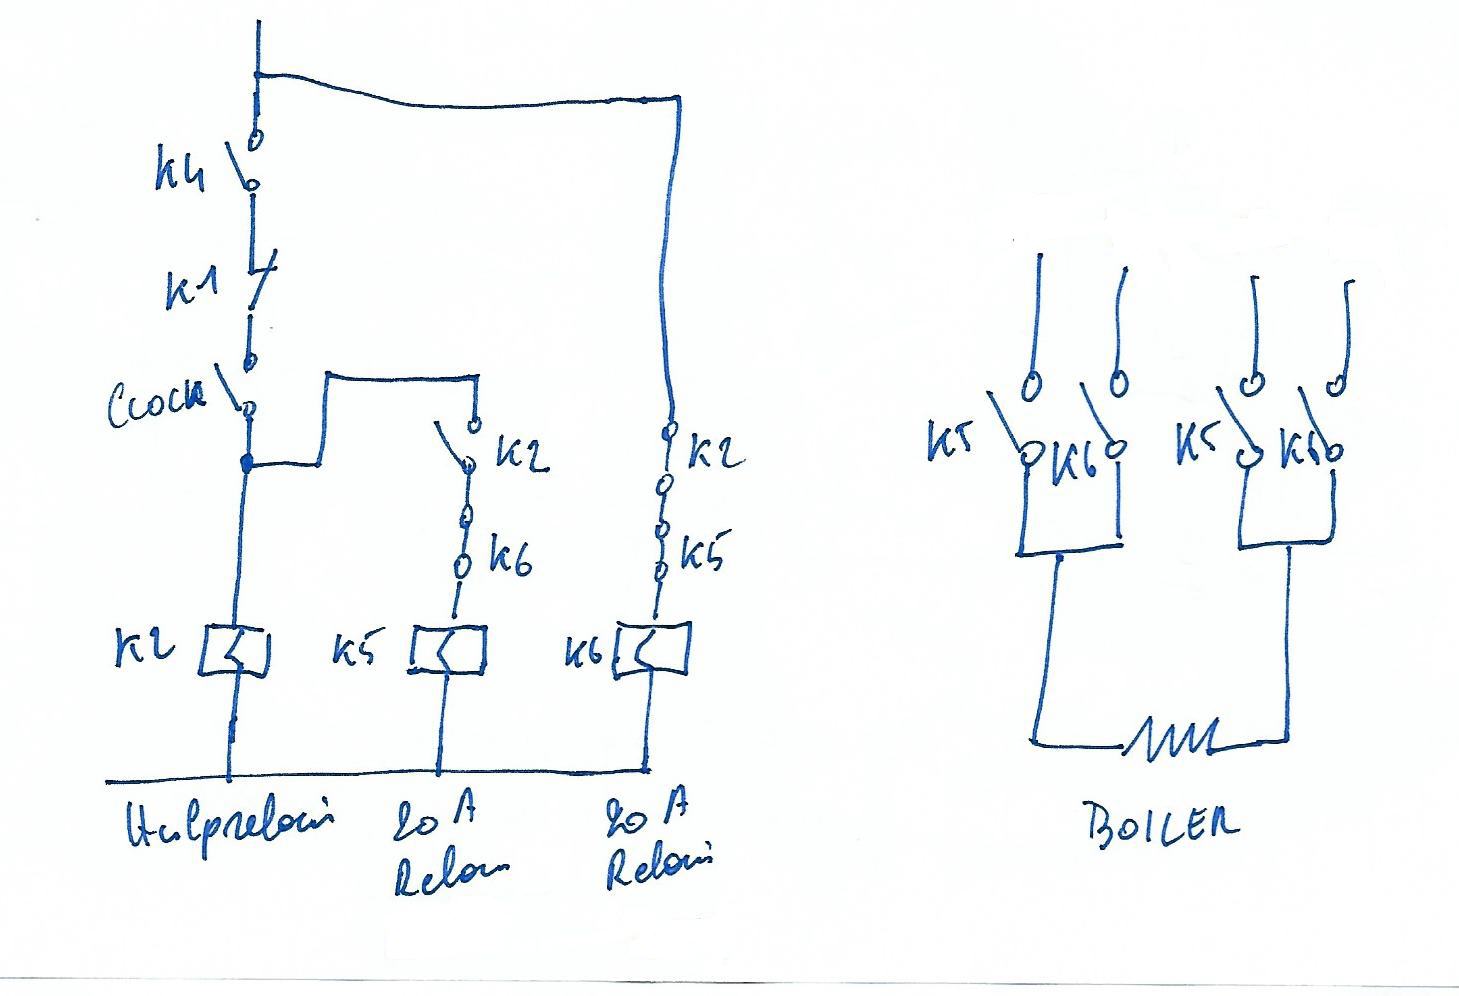 K4
K1
Clock
K2
K2
K6
K5
K2
K5
K6
Hulprelais
20 A
Relais
20 A
Relais
K5
K6
K5
K6
BOILER